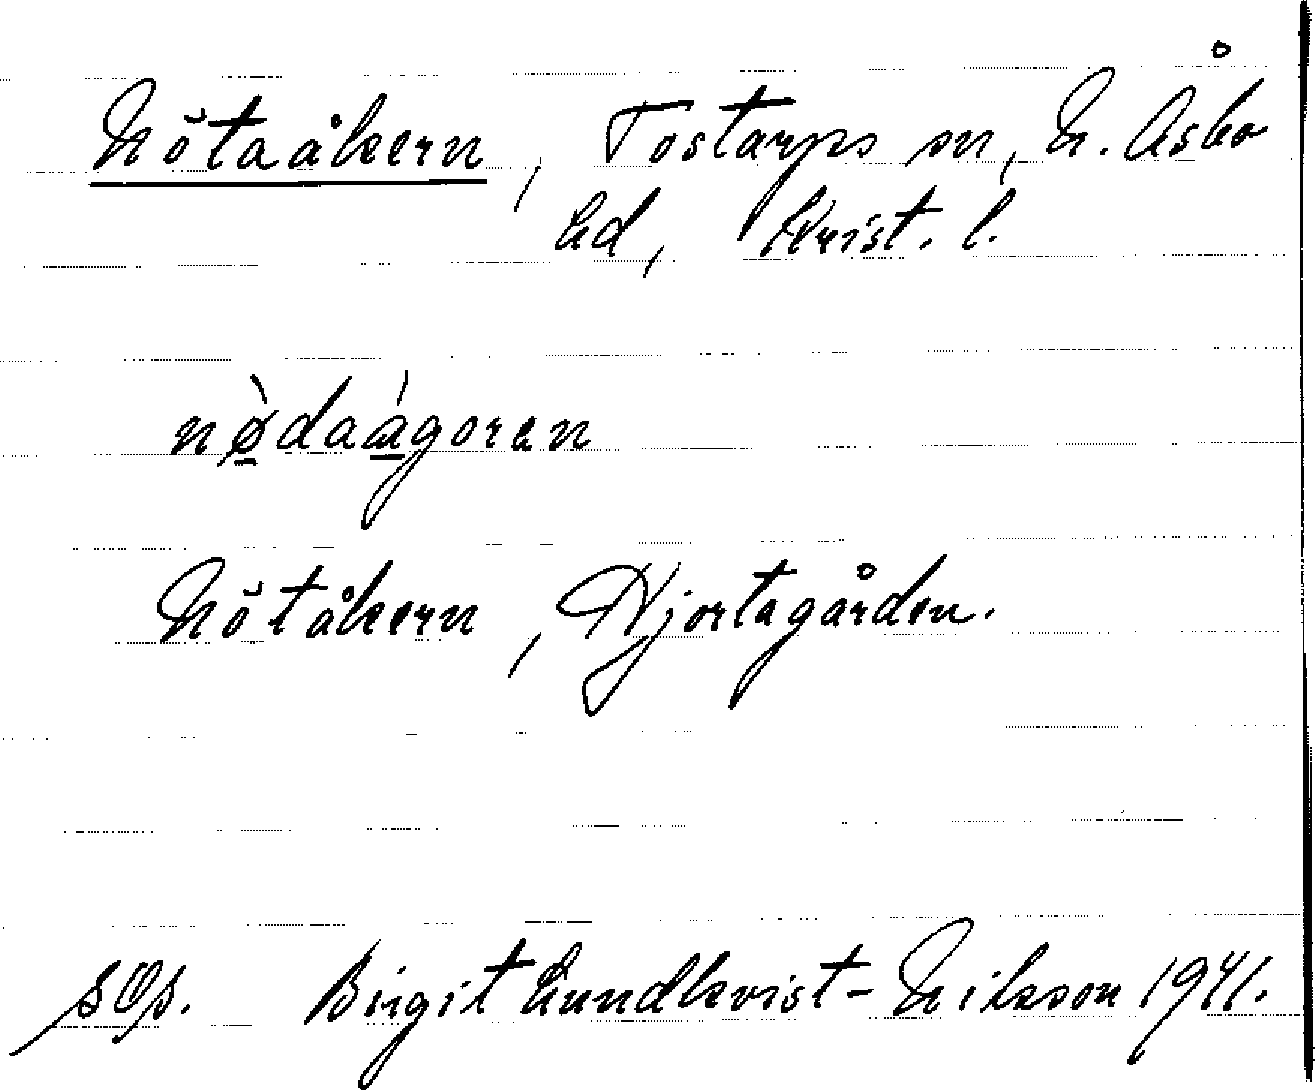 Nötaåkern, Tostarps sn, N. Åsbo
hd, Krist. l.
nø̀daágoren
Nötåkern, Hjortagården.
Birgit Lundkvist-Nilsson 1941.